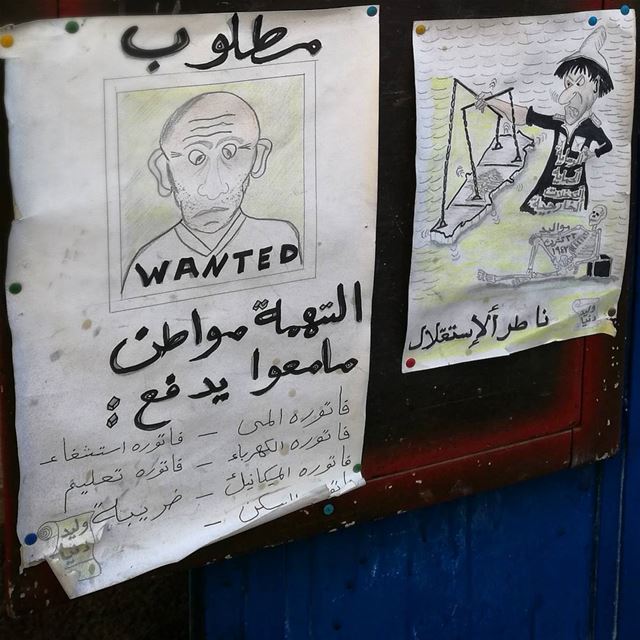 مطلوب
WANTED
التهمة مواطن
مامعوا يدفع:
فاتوره المي - فاتوره استشفاء -
فاتوره الكهرباء - فاتوره تعليم
فاتوره الميكانيك - ضريبة
السكن -
وليد
ناطر ألإستقلال